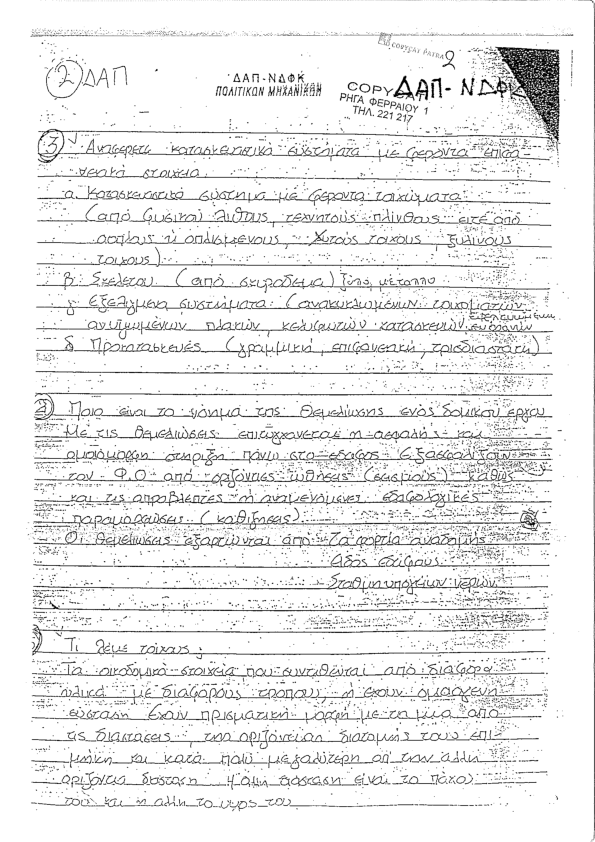 COPYCAT PATRA
2
② ΔΑΠ
ΔΑΠ-ΝΔΦΚ
ΠΟΛΙΤΙΚΩΝ ΜΗΧΑΝΙΚΩΝ
COPY ΔΑΠ-ΝΔΦΚ
ΡΗΓΑ ΦΕΡΡΑΙΟΥ 1
ΤΗΛ. 221 217
③ Αναφερετε κατασκευαστικά συστήματα με φεροντα επιφα-
νειακά στοιχεια
α. Κατασκευαστικό σύστημα με φεροντα τοιχώματα
(από φυσικού λίθους, τεχνητούς πλίνθους είτε από
αοπλους ή οπλισμένους, χυτούς τοιχους, ξυλινους
τοιχους)
β. Σκελετου (από σκυροδεμα) ξύλο, μεταλλο
γ. Εξελιγμενα συστήματα (ανακυκλωμένων τοιχωμάτων
ανυψωμμένων πλακών, κελυφωτών κατασκευών,
δ Προκατασκευές (γραμμική, επιφανειακή, τρισδιαστατη)
④ Ποιο ειναι το νόημα της θεμελίωσης ενός δομικου εργου
Με τις θεμελιωσεις επιτυγχανεται η ασφαλής και
ομοιόμορφη στηριξη πάνω στο εδαφος. Εξασφαλίζουν
τον Φ.Ο από οριζόντιες ωθήσεις (σεισμους) καθώς
και τις απροβλεπτες ή αναμενόμενες εδαφολογικες
παραμορφώσεις (καθιζησεις)
Οι θεμελιωσεις εξαρτώνται από - Τα φορτία ανωδομής
Είδος εδάφους
Σταθμη υπογείων νερών
Τι λεμε τοίχους;
Τα οικοδομικά στοιχεία που συντιθενται από διαφορα
υλικά με διαφορους τροπους, ή εχουν ομοιογενη
σύσταση έχουν πρισματική μορφή με τη μια από
τις διαστασεις, της οριζόντειας διατομής τους επι-
μήκη και κατα πολυ μεγαλύτερη απ την αλλη
οριζόντια διαστάση. Η αλλη διασταση ειναι το πάχος
του και η αλλη το υψος του